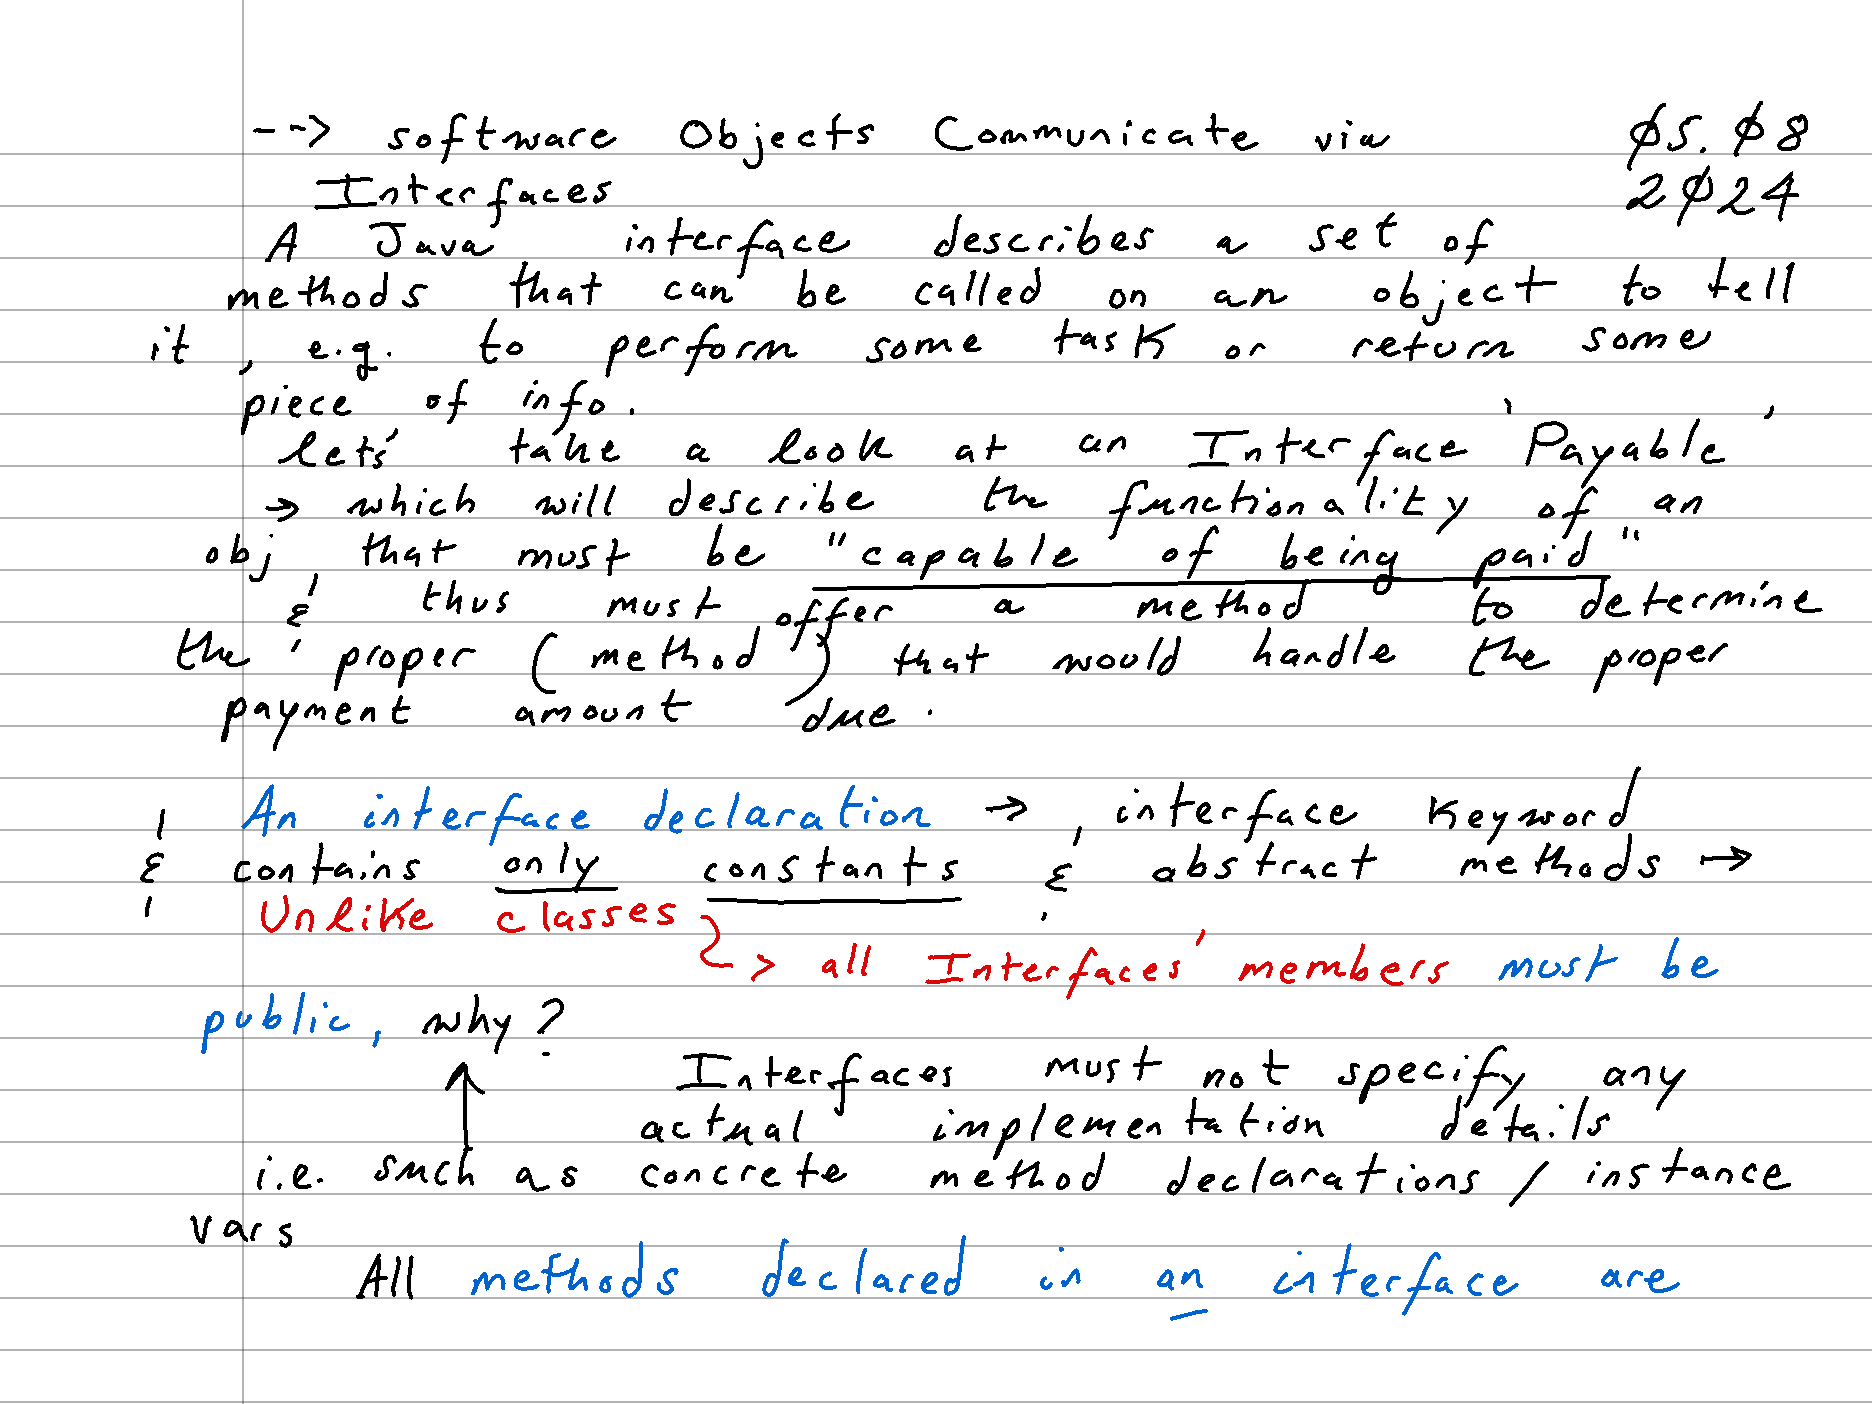 --> software Objects Communicate via Ø5. Ø8
Interfaces 2Ø24
A Java interface describes a set of
methods that can be called on an object to tell
it, e.g. to perform some task or return some
piece of info.
lets' take a look at an Interface 'Payable'
→ which will describe the functionality of an
obj that must be "capable of being paid"
& thus must offer a method to determine
the proper (method) that would handle the proper
payment amount due.
An interface declaration → interface keyword
& contains only constants & abstract methods →
Unlike classes
↳> all Interfaces' members must be
public, why?
Interfaces must not specify any
actual implementation details
i.e. such as concrete method declarations / instance
vars
All methods declared in an interface are